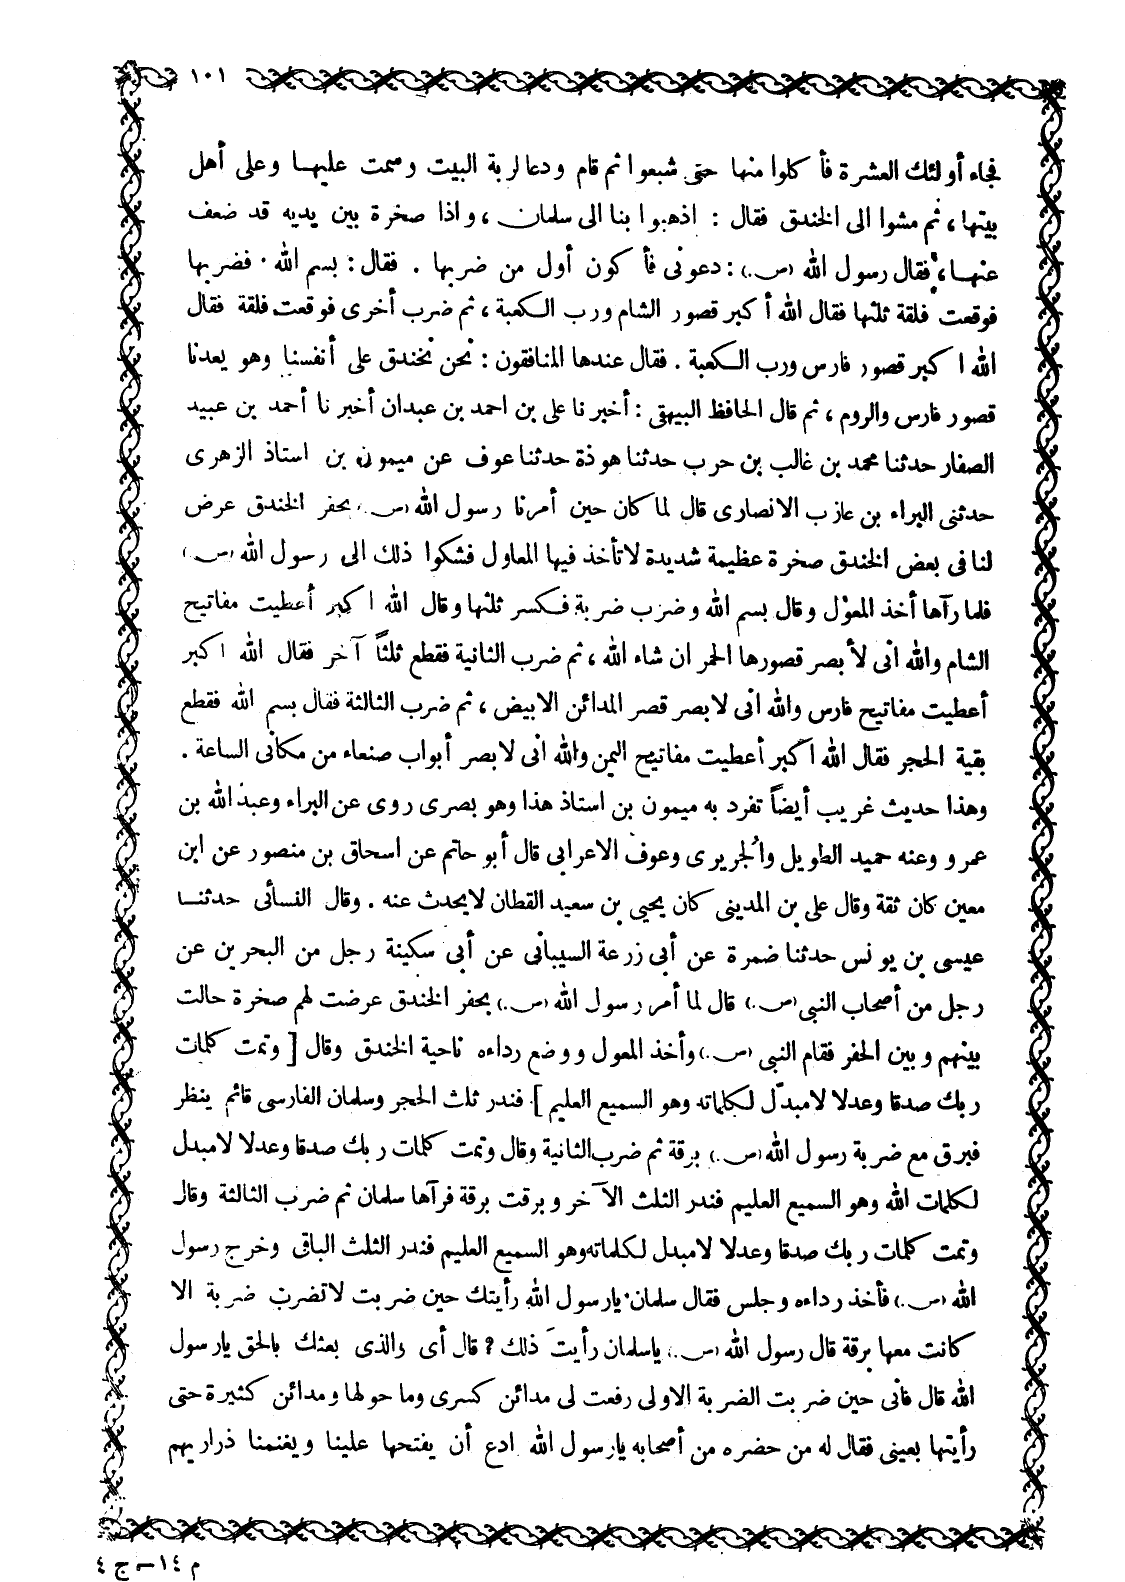 ١٠١
فجاء أولئك العشرة فأكلوا منها حتى شبعوا ثم قام ودعا لربة البيت وسمت عليهـا وعلى أهل
بيتها، ثم مشوا الى الخندق فقال : اذهبوا بنا الى سلمان، واذا صخرة بين يديه قد ضعف
عنهـا، فقال رسول الله (ص.) : دعونى فأكون أول من ضربها . فقال : بسم الله . فضربها
فوقعت فلقة ثلثها فقال الله أكبر قصور الشام ورب الكعبة، ثم ضرب أخرى فوقعت فلقة فقال
الله اكبر قصور فارس ورب الكعبة . فقال عندها المنافقون : نحن نخندق على أنفسنا وهو يعدنا
قصور فارس والروم، ثم قال الحافظ البيهقى : أخبرنا على بن احمد بن عبدان أخبرنا أحمد بن عبيد
الصفار حدثنا محمد بن غالب بن حرب حدثنا هوذة حدثنا عوف عن ميمون بن استاذ الزهرى
حدثنى البراء بن عازب الانصارى قال لما كان حين أمرنا رسول الله (ص.) بحفر الخندق عرض
لنا فى بعض الخندق صخرة عظيمة شديدة لا تأخذ فيها المعاول فشكوا ذلك الى رسول الله (ص)
فلما رآها أخذ المعول وقال بسم الله وضرب ضربة فكسر ثلثها وقال الله اكبر أعطيت مفاتيح
الشام والله انى لأبصر قصورها الحمر ان شاء الله، ثم ضرب الثانية فقطع ثلثاً آخر فقال الله اكبر
أعطيت مفاتيح فارس والله انى لابصر قصر المدائن الابيض، ثم ضرب الثالثة فقال بسم الله فقطع
بقية الحجر فقال الله اكبر أعطيت مفاتيح اليمن والله انى لابصر أبواب صنعاء من مكانى الساعة .
وهذا حديث غريب أيضاً تفرد به ميمون بن استاذ هذا وهو بصرى روى عن البراء وعبد الله بن
عمرو وعنه حميد الطويل والجريرى وعوف الاعرابى قال أبو حاتم عن اسحاق بن منصور عن ابن
معين كان ثقة وقال على بن المدينى كان يحيى بن سعيد القطان لا يحدث عنه . وقال النسائى حدثنـا
عيسى بن يونس حدثنا ضمرة عن أبى زرعة السيبانى عن أبى سكينة رجل من البحرين عن
رجل من أصحاب النبى (ص.) قال لما أمر رسول الله (ص.) بحفر الخندق عرضت لهم صخرة حالت
بينهم وبين الحفر فقام النبى (ص.) وأخذ المعول ووضع رداءه ناحية الخندق وقال [ وتمت كلمات
ربك صدقا وعدلا لا مبدّل لكلماته وهو السميع العليم ] فندر ثلث الحجر وسلمان الفارسى قائم ينظر
فبرق مع ضربة رسول الله (ص.) برقة ثم ضرب الثانية وقال وتمت كلمات ربك صدقا وعدلا لا مبدل
لكلمات الله وهو السميع العليم فندر الثلث الآخر وبرقت برقة فرآها سلمان ثم ضرب الثالثة وقال
وتمت كلمات ربك صدقا وعدلا لا مبدل لكلماته وهو السميع العليم فندر الثلث الباقى وخرج رسول
الله (ص.) فأخذ رداءه وجلس فقال سلمان يارسول الله رأيتك حين ضربت لا تضرب ضربة الا
كانت معها برقة قال رسول الله (ص.) ياسلمان رأيتَ ذلك ؟ قال أى والذى بعثك بالحق يارسول
الله قال فانى حين ضربت الضربة الاولى رفعت لى مدائن كسرى وما حولها ومدائن كثيرة حتى
رأيتها بعينى فقال له من حضره من أصحابه يارسول الله ادع أن يفتحها علينا ويغنمنا ذراريهم
م ١٤ – ج ٤